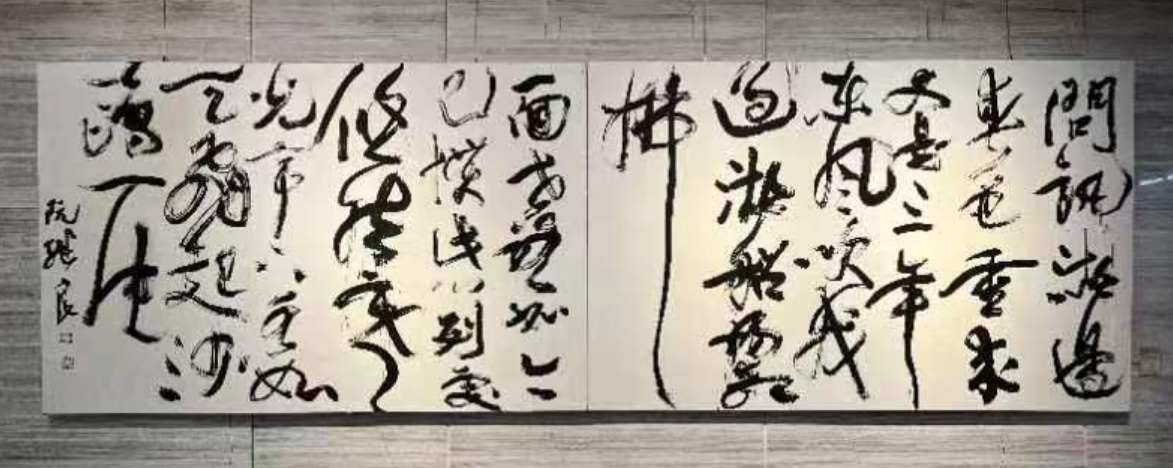 問訊湖邊
春色重來
又是三年
东风吹我
過湖船楊
拂
面世路如今
已惯此心到處
悠然寒
光亭下水如
天飛起沙
鷗一片
阮
良